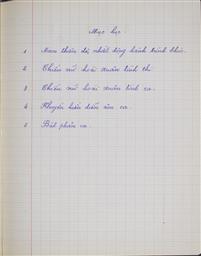 Mục lục.
1 Nam thiên đệ nhất động hành trình khúc.
2 Thiếu nữ hoài xuân tình thi
3 Thiếu nữ hoài xuân tình ca.
4 Khuyến hiếu diễn âm ca.
5 Bát phản ca.